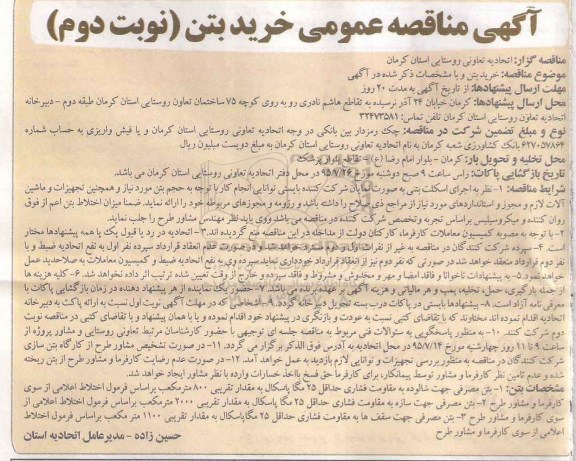 آگهی مناقصه عمومی خرید بتن (نوبت دوم)
مناقصه گزار: اتحادیه تعاونی روستایی استان کرمان
موضوع مناقصه: خرید بتن و با مشخصات ذکر شده در آگهی
مهلت ارسال پیشنهادها: از تاریخ آگهی به مدت ۲۰ روز
محل ارسال پیشنهادها: کرمان خیابان ۲۴ آذر نرسیده به تقاطع هاشم نادری رو به روی کوچه ۷۵ ساختمان تعاون روستایی استان کرمان طبقه دوم - دبیرخانه
اتحادیه تعاونی روستایی استان کرمان تلفن تماس: ۳۲۴۷۳۵۸۱
نوع و مبلغ تضمین شرکت در مناقصه: چک رمزدار بین بانکی در وجه اتحادیه تعاونی روستایی استان کرمان و یا فیش واریزی به حساب شماره
۶۲۷۰۵۷۸۶۴ بانک کشاورزی شعب کرمان به نام اتحادیه تعاونی روستایی استان کرمان به مبلغ دویست میلیون ریال
محل تخلیه و تحویل بار: کرمان - بلوار امام رضا (ع) - تقاطع بلوار پزشک
تاریخ بازگشایی پاکات: راس ساعت ۹ صبح دوشنبه مورخ ۹۵/۷/۲۶ در محل دفتر اتحادیه تعاونی روستایی استان کرمان می باشد.
شرایط مناقصه: ۱- نظر به اجرای اسکلت بتنی به صورت نمایان شرکت کننده بایستی توانایی انجام کار با توجه به حجم بتن مورد نیاز و همچنین تجهیزات و ماشین
آلات لازم و مجوز و استانداردهای مورد نیاز از مراجع ذی صلاح را داشته باشد و رزومه و مجوزهای مربوطه خود را ارائه نمایند. ضمنا میزان اختلاط بتن اعم از فوق
روان کننده و میکروسیلیس براساس تجربه وتخصص شرکت کننده در مناقصه می باشد ووی باید نظر مهندس مشاور طرح را جلب نماید.
۲- با توجه به مصوبه کمیسیون معاملات کارفرما، کارکنان دولت از مداخله در این مناقصه منع گردیده اند. ۳- اتحادیه در رد یا قبول یک یا همه پیشنهادها مختار
است. ۴- سپرده شرکت کنندگان در مناقصه به غیر از نفرات اول و دوم مسترد خواهد شد و در صورت عدم انعقاد قرارداد سپرده نفر اول به نفع اتحادیه ضبط و با
نفر دوم قرارداد منعقد خواهد شد در صورتی که نفر دوم نیز از انعقاد قرارداد خودداری نماید سپرده وی به نفع اتحادیه ضبط و کمیسیون معاملات به صلاحدید عمل
خواهد نمود. ۵- به پیشنهادات ناخوانا و فاقد امضا و مهر و مخدوش و مشروط و فاقد سپرده و خارج از وقت تعیین شده ترتیب اثر داده نخواهد شد. ۶- کلیه هزینه ها
از جمله بارگیری، حمل، تخلیه، پمپ و هر مالیاتی و هزینه آگهی بر عهده برنده می باشد. ۷- حضور یک نماینده از هر پیشنهاد دهنده در زمان بازگشایی پاکات با
معرفی نامه آزاد است. ۸- پیشنهادها بایستی در پاکات درب بسته تحویل دبیرخانه گردد. ۹- اشخاصی که در مهلت آگهی نوبت اول نسبت به ارائه پاکت به دبیرخانه
اتحادیه اقدام نموده اند مختارند که با تقاضای کتبی نسبت به عودت و بازنگری در پیشنهاد خود اقدام نموده و یا با همان پیشنهاد و با تقاضای کتبی در مناقصه نوبت
دوم شرکت کنند. ۱۰- به منظور پاسخگویی به سئوالات فنی مربوط به مناقصه جلسه ای توجیهی با حضور کارشناسان مرتبط تعاونی روستایی و مشاور پروژه از
ساعت ۹ تا ۱۱ روز چهارشنبه مورخ ۹۵/۷/۱۴ در محل اتحادیه به آدرس فوق الذکر برگزار می گردد. ۱۱- در صورت تشخیص مشاور طرح از کارگاه بتن سازی
شرکت کنندگان در مناقصه به منظور بررسی تجهیزات و توانایی لازم بازدید به عمل خواهد آمد. ۱۲- در صورت عدم رضایت کارفرما و مشاور طرح از بتن ریخته
شده و عدم تامین نظر کارفرما و مشاور توسط پیمانکار، برای کارفرما حق فسخ یااخذ خسارات وارده با نظر مشاور ایجاد خواهد شد.
مشخصات بتن: ۱- بتن مصرفی جهت شالوده به مقاومت فشاری حداقل ۲۵ مگا پاسکال به مقدار تقریبی ۸۰۰ مترمکعب براساس فرمول اختلاط اعلامی از سوی
کارفرما و مشاور طرح ۲- بتن مصرفی جهت سازه به مقاومت فشاری حداقل ۲۵ مگا پاسکال به مقدار تقریبی ۲۰۰۰ مترمکعب براساس فرمول اختلاط اعلامی از
سوی کارفرما و مشاور طرح ۳- بتن مصرفی جهت سقف ها به مقاومت فشاری حداقل ۲۵ مگاپاسکال به مقدار تقریبی ۱۱۰۰ متر مکعب براساس فرمول اختلاط
اعلامی از سوی کارفرما و مشاور طرح
حسین زاده - مدیرعامل اتحادیه استان